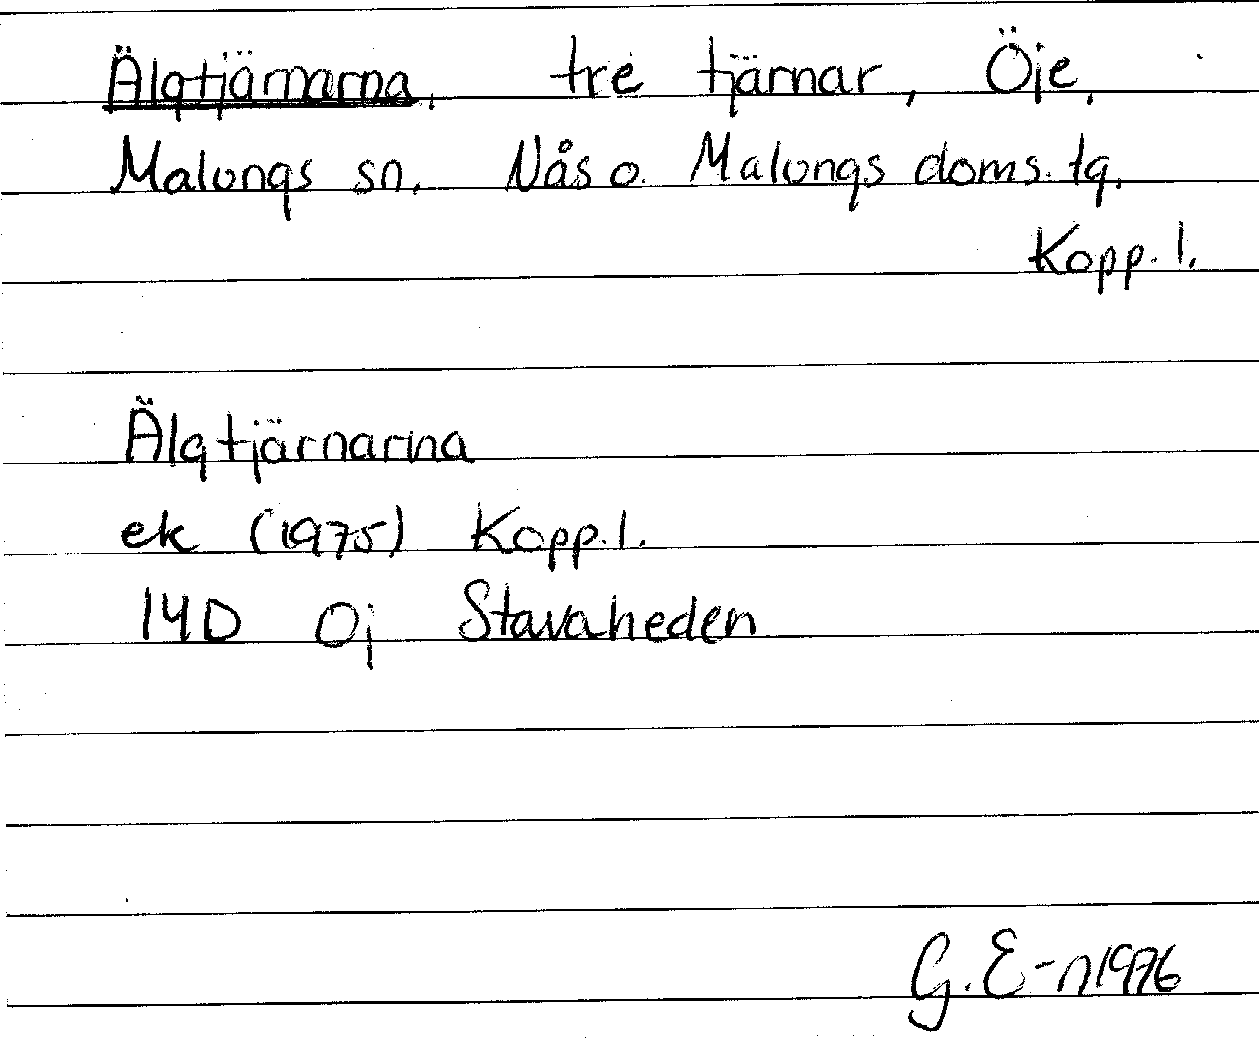 Älgtjärnarna, tre tjärnar, Öje,
Malungs sn. Nås o. Malungs doms. tg.
Kopp. l.
Älgtjärnarna
ek (1975) Kopp. l.
14D 0j Stavaheden
G. E-n 1976